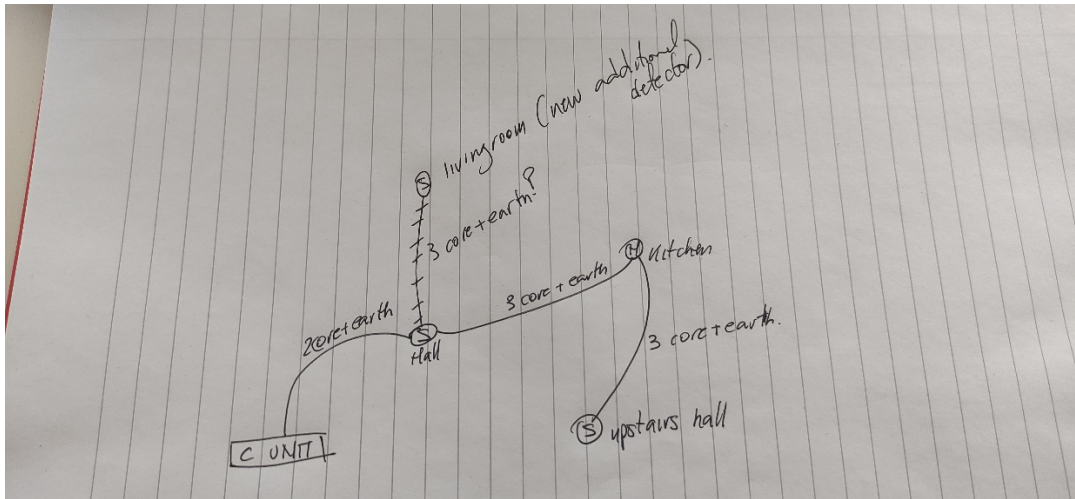 livingroom (new additional
detector).
S
3 core+earth?
H
Kitchen
3 core+earth
2core+earth
S
Hall
3 core+earth.
S
upstairs hall
C UNIT